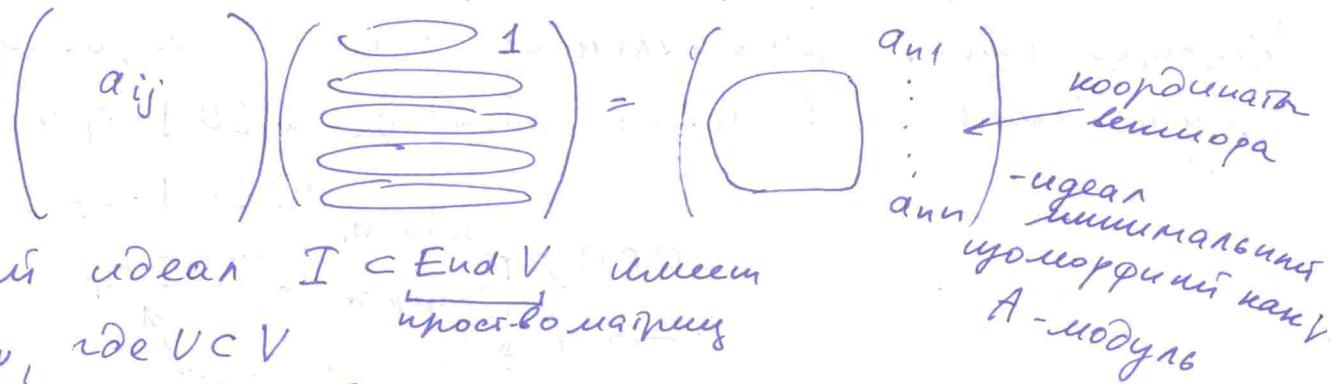 ( a_ij ) ( 1 ) = ( a_n1 ⋮ a_nn )
координаты
вектора
- идеал
минимальный
изоморфный как V
A-модуль
й идеал I ⊂ End V имеет
простр-во матриц
где U ⊂ V